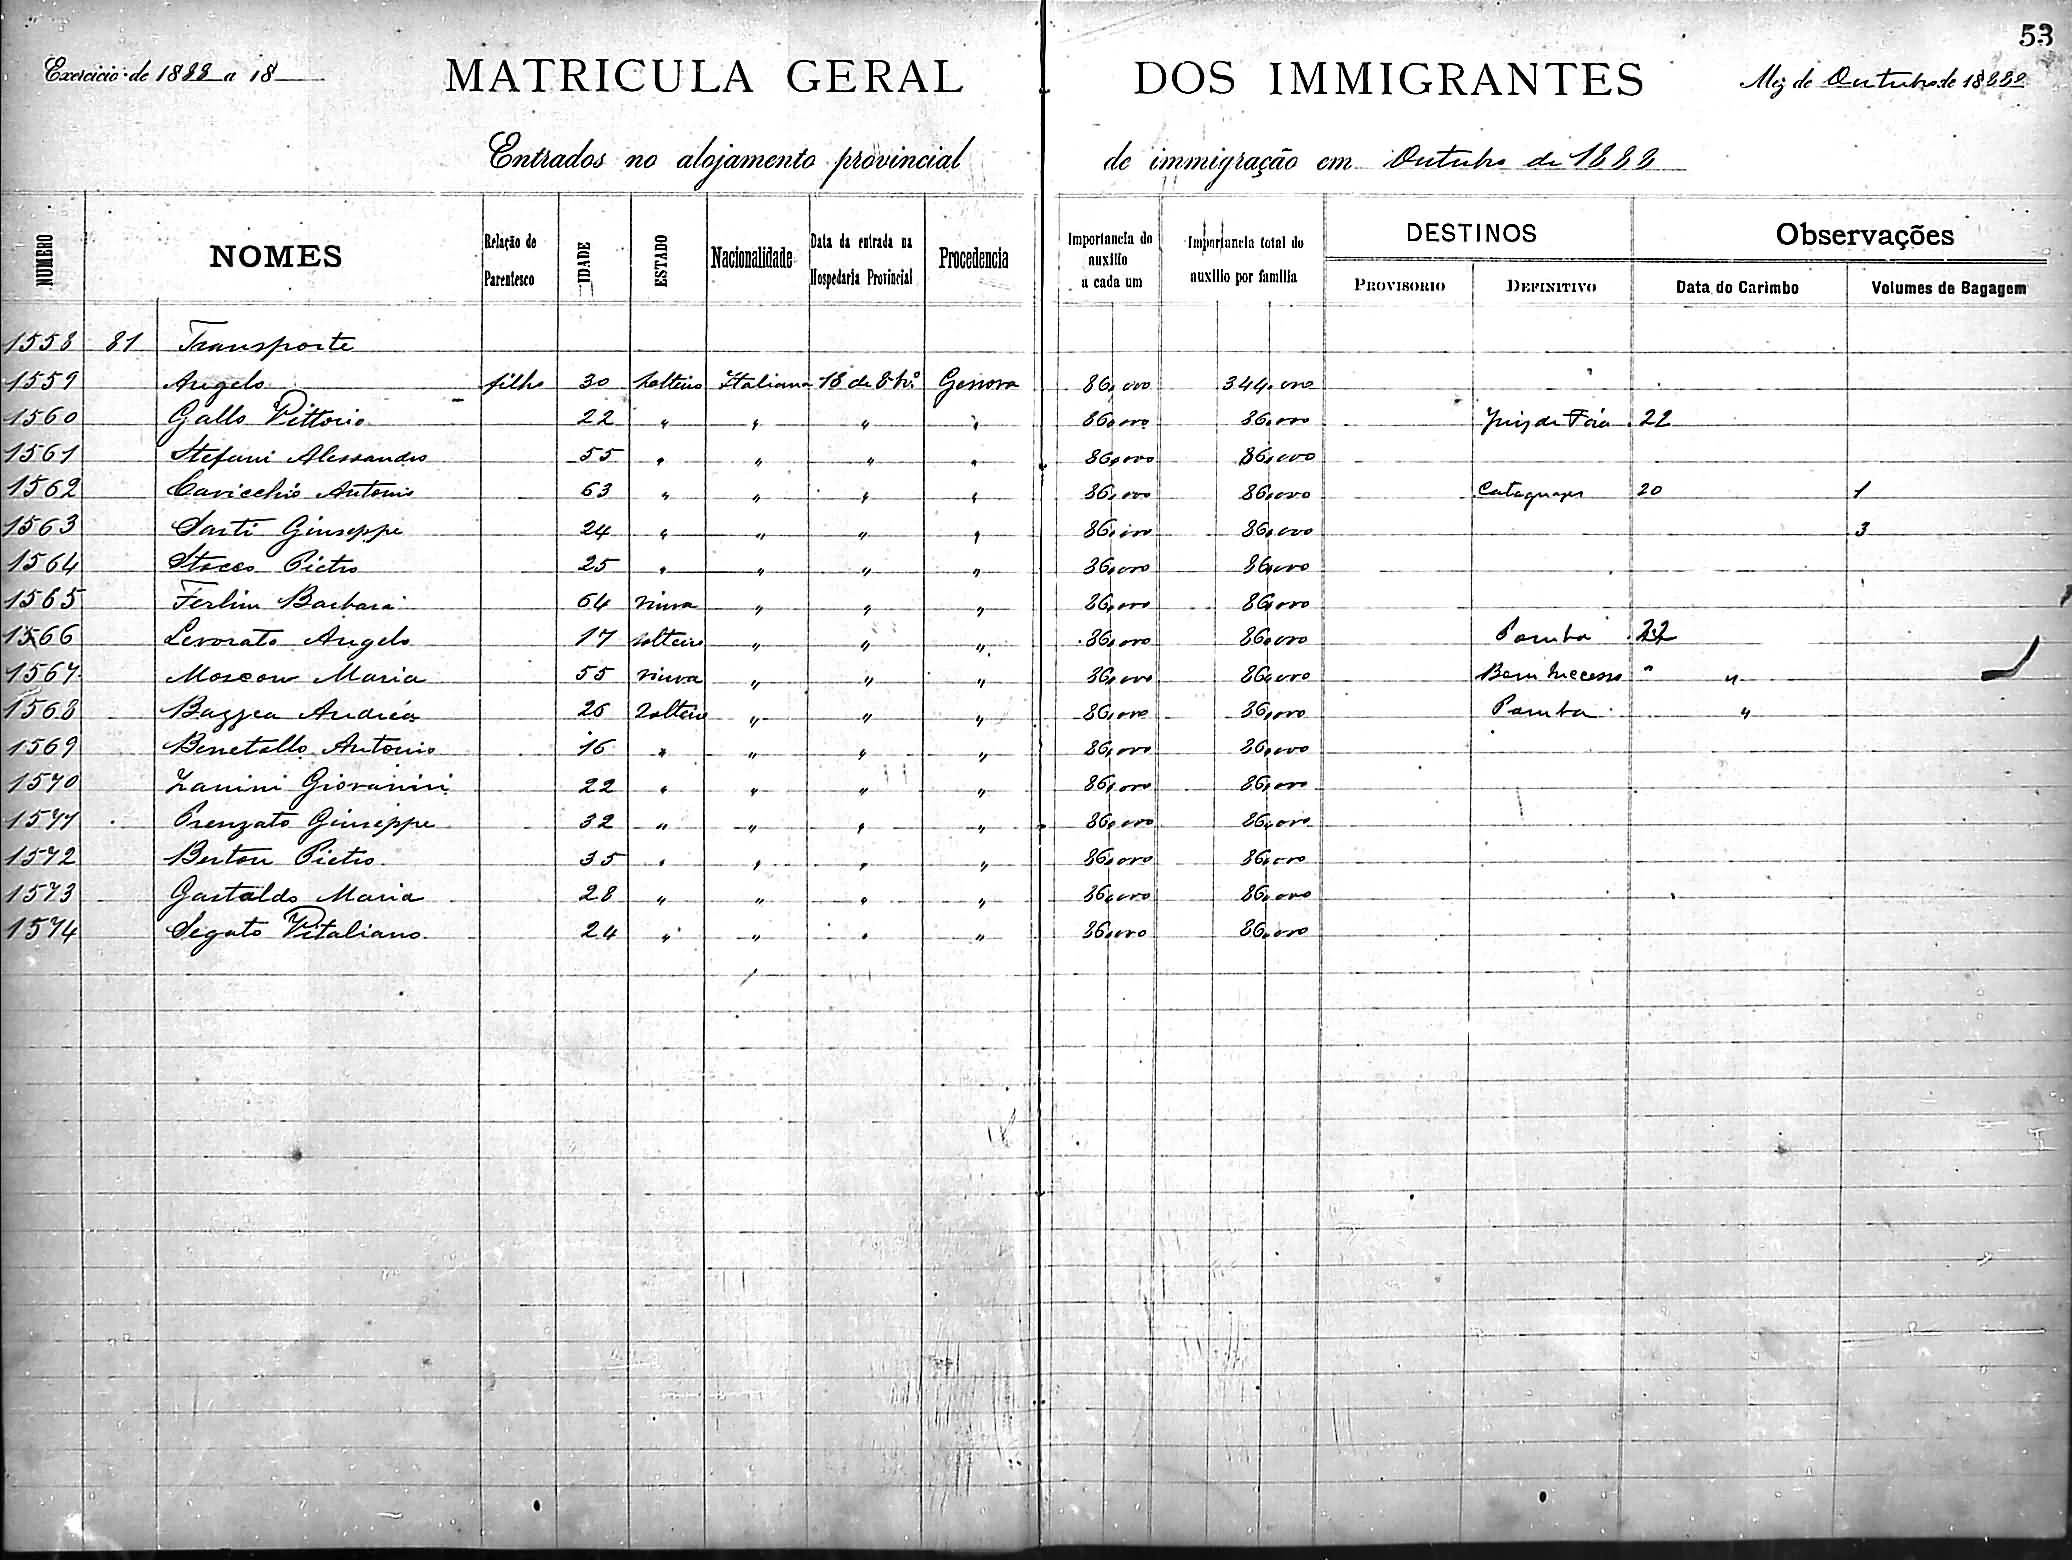 53
Exercicio de 1888 a 18
MATRICULA GERAL DOS IMMIGRANTES
Mez de Outubro de 1888
Entrados no alojamento provincial de immigração em Outubro de 1888
NUMERO NOMES Relação de Parentesco IDADE ESTADO Nacionalidade Data da entrada na Hospedaria Provincial Procedencia Importancia do auxilio a cada um Importancia total do auxilio por familia DESTINOS PROVISORIO DEFINITIVO Observações Data do Carimbo Volumes de Bagagem
1558 81 Transporte
1559 Angelo filho 30 solteiro Italiana 18 de 8bro Genova 86,000 344,000
1560 Gallo Vittorio 22 " " " " 86,000 86,000 Juiz de Fóra 22
1561 Stefani Alessandro 55 " " " " 86,000 86,000
1562 Cavicchio Antonio 63 " " " " 86,000 86,000 Cataguazes 20 1
1563 Sarti Giuseppe 24 " " " " 86,000 86,000 3
1564 Stocco Pietro 25 " " " " 86,000 86,000
1565 Ferlin Barbara 64 viuva " " " 86,000 86,000
1566 Levorato Angelo 17 solteiro " " " 86,000 86,000 Pomba 22
1567 Moscon Maria 55 viuva " " " 86,000 86,000 Bom Successo " "
1568 Bazzea Andréa 26 Solteiro " " " 86,000 86,000 Pomba "
1569 Benetallo Antonio 16 " " " " 86,000 86,000
1570 Zanini Giovanini 22 " " " " 86,000 86,000
1571 Prenzato Giuseppe 32 " " " " 86,000 86,000
1572 Berton Pietro 35 " " " " 86,000 86,000
1573 Gastaldo Maria 28 " " " " 86,000 86,000
1574 Segato Vitaliano 24 " " " " 86,000 86,000